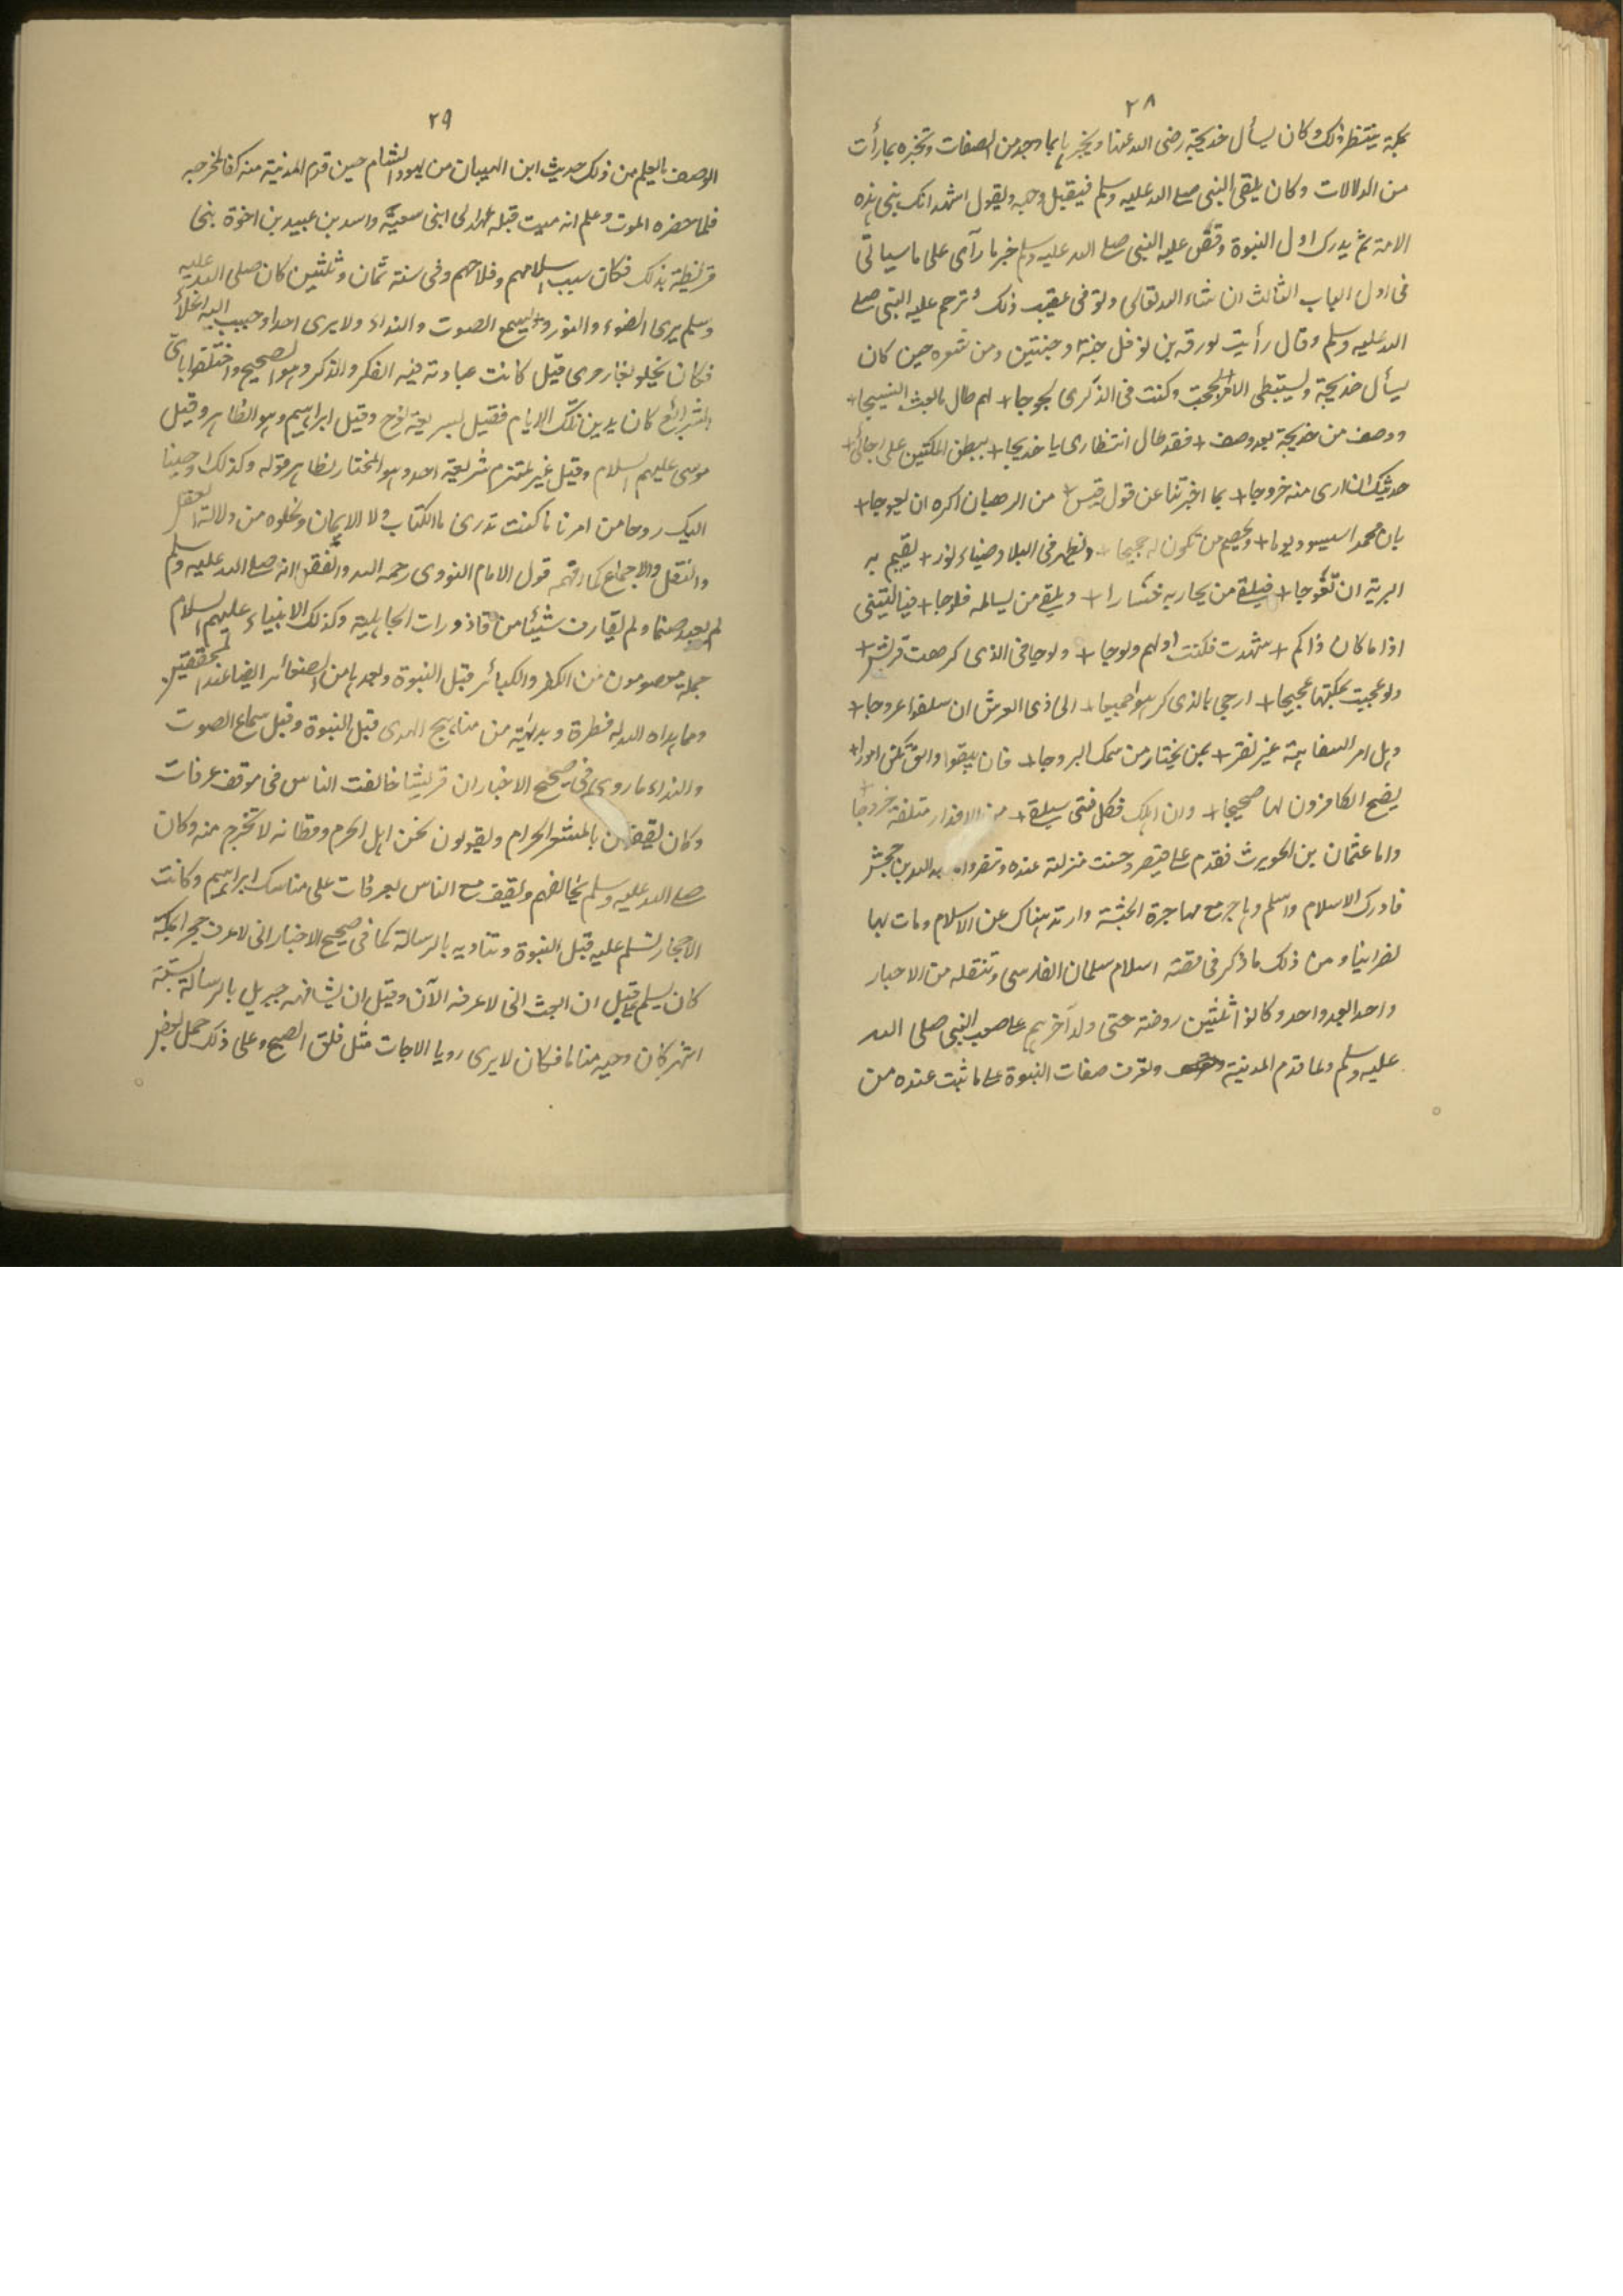 ٢٨
بمكة ينتظر ذلك وكان يسأل خديجة رضى الله عنها ويخبرها بما وجد من الصفات وتخبره بما رأت
من الدلالات وكان يلقى النبى صلے الله عليه وسلم فيقبل وجهه ويقول اشهد انك نبى هذه
الامة ثم يدرك اول النبوة وقصّ عليه النبى صلے الله عليه وسلم خبر ما رآى على ما سياتى
فى اول الباب الثالث ان شاء الله تعالى وتوفى عقيب ذلك وترحم عليه النبى صلے
الله عليه وسلم وقال رأيت لورقه بن نوفل جنة او جنتين ومن شعره حين كان
يسأل خديجة ويستبطى الامر لججت وكنت فى الذكرى لجوجا + لهم طال ما بعث النشيجا +
ووصف من خديجة بعد وصف + فقد طال انتظارى يا خديجا + ببطن المكتين على رجائى +
حديثك ان ارى منه خروجا + بما اخبرتنا عن قول قس + من الرهبان اكره ان يعوجا +
بان محمدا سيسود يوما + ويخصم من تكون له حجيجا + ويظهر فى البلاد ضياء نور + يقيم به
البرية ان تعوجا + فيلقے من يحاربه خسارا + ويلقے من يسالمه فلوجا + فيا ليتنى
اذا ما كان ذاكم + شهدت فكنت اولهم ولوجا + ولوجا فى الذى كرهت قريش +
ولو عجبت بمكتها عجيجا + ارجى بالذى كرهوا جميعا + الى ذى العرش ان سفلوا عروجا +
وهل امر السفاهة غير نفر + بمن يختار من سمك البروجا + فان يبقوا وابق تكن امورا +
يضج الكافرون لها ضجيجا + وان اهلك فكل فتى سيلقے + من الاقدار متلفة خروجا +
واما عثمان بن الحويرث فقدم على قيصر وحسنت منزلته عنده وتنصر واما عبد الله بن جحش
فادرك الاسلام واسلم وهاجر مع مهاجرة الحبشة وارتد هناك عن الاسلام ومات بها
نصرانيا ومن ذلك ما ذكر فى قصة اسلام سلمان الفارسى وتنقله من الاحبار
واحدا بعد واحد وكانوا ثلثين روضة حتى دله آخرهم على صحب النبى صلى الله
عليه وسلم ولما قدم المدينة وتعرف صفات النبوة على ما ثبت عنده من
٢٩
الوصف بالعلم من ذلك حديث ابن الهيبان من يهود الشام حين قدم المدينة منه كفا لمخرجه
فلما حضره الموت وعلم انه ميت قبله عهد الى ابنى سعية واسد بن عبيد بن اخوة بنى
قريظة بذلك فكان سبب اسلامهم وفلاحهم وفى سنة ثمان وثلثين كان صلى الله عليه
وسلم يرى الضوء والنور ويسمع الصوت والنداء ولا يرى احدا وحبب اليه الخلاء
فكان يخلو بغار حرى قيل كانت عبادته فيه الفكر والذكر وهو الصحيح واختلفوا باى
الشرائع كان يدين تلك الايام فقيل بشريعة نوح وقيل ابراهيم وهو الظاهر وقيل
موسى عليهم السلام وقيل غير ملتزم شريعة احد وهو المختار لظاهر قوله وكذلك اوحينا
اليك روحا من امرنا ما كنت تدرى ما الكتاب ولا الايمان ونحوه من دلالة العقل
والنقل والاجماع كما رقم قول الامام النووى رحمه الله واتفقوا انه صلے الله عليه وسلم
لم يعبد صنما ولم يقارن شيئا من قاذورات الجاهلية وكذلك الانبياء عليهم السلام
جملة معصومون من الكفر والكبائر قبل النبوة وبعدها من الصغائر ايضا عند المحققين
ومما هداه الله له فطرة وبداية من مناهج الهدى قبل النبوة وقبل سماع الصوت
والنداء ما روى فى صحيح الاخبار ان قريشا خالفت الناس فى موقف عرفات
وكان يقفون بالمشعر الحرام ويقولون نحن اهل الحرم وقطانه لا نخرج منه وكان
صلے الله عليه وسلم يخالفهم ويقف مع الناس بعرفات على مناسك ابراهيم وكانت
الاحجار تسلم عليه قبل النبوة وتناديه بالرسالة كما فى صحيح الاخبار انى لاعرف حجرا بمكة
كان يسلم على قبل ان ابعث انى لاعرفه الآن وقيل ان يشافهه جبريل بالرسالة بستة
اشهر كان وحيه مناما فكان لا يرى رويا الا جات مثل فلق الصبح وعلى ذلك حمل بعض